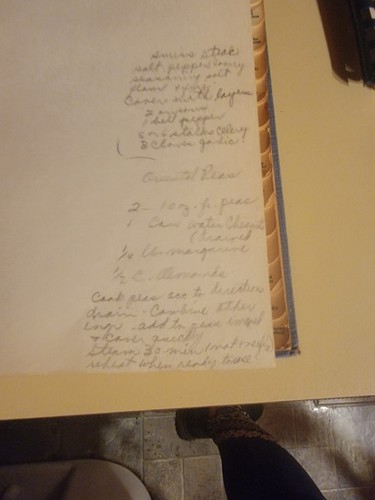 Swiss Steak
salt, pepper
seasoning salt
Cover with layers
onions
1 bell pepper
5 or 6 stalks celery
3 cloves garlic
Oriental Peas
2 - 10 oz. fr. peas
1 Can water Chesnuts
(drained
1/4 lb. margarine
1/2 C. Almonds
Cook peas acc to directions
drain - Combine other
ingr. add to peas
& cover quickly
Steam 30 min
reheat when ready to use